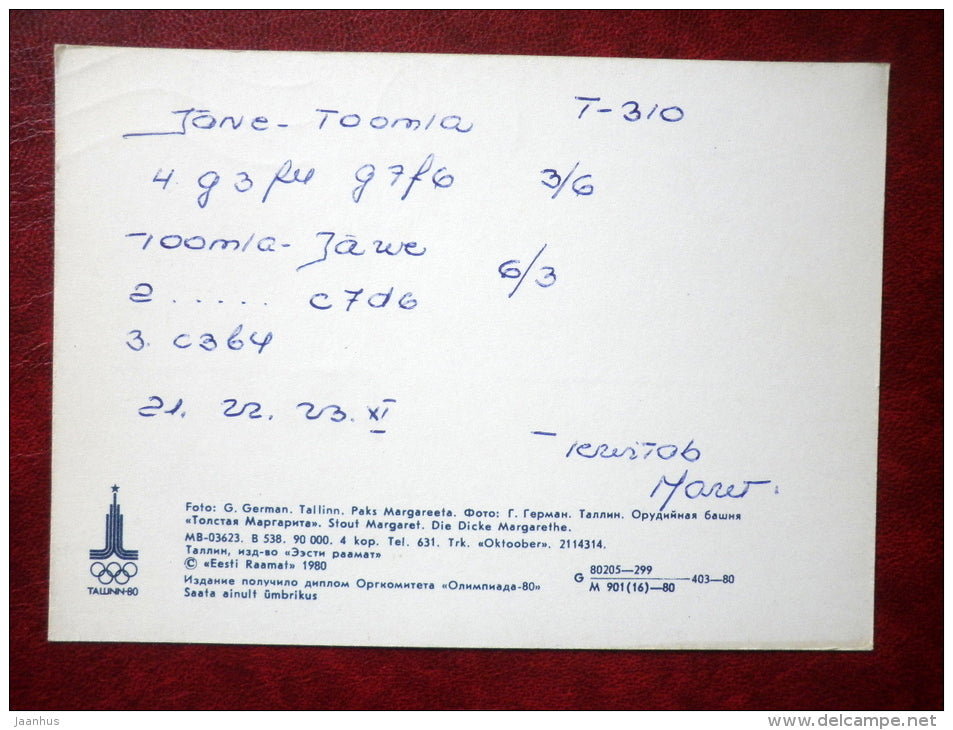 Järve - Toomla T-310
4. g3f4 g7f6 3/6
Toomla - Järve 6/3
2 . . . . . c7d6
3. c3b4
21. 22. 23. XI
Tervitab
Maret.
TALLINN·80
Foto: G. German. Tallinn. Paks Margareeta. Фото: Г. Герман. Таллин. Орудийная башня
«Толстая Маргарита». Stout Margaret. Die Dicke Margarethe.
MB-03623. B 538. 90 000. 4 kop. Tel. 631. Trk. «Oktoober». 2114314.
Таллин, изд-во «Ээсти раамат»
© «Eesti Raamat» 1980
Издание получило диплом Оргкомитета «Олимпиада-80»
Saata ainult ümbrikus
G 80205—299 / M 901(16)—80 —403—80
jaanhus
www.delcampe.net